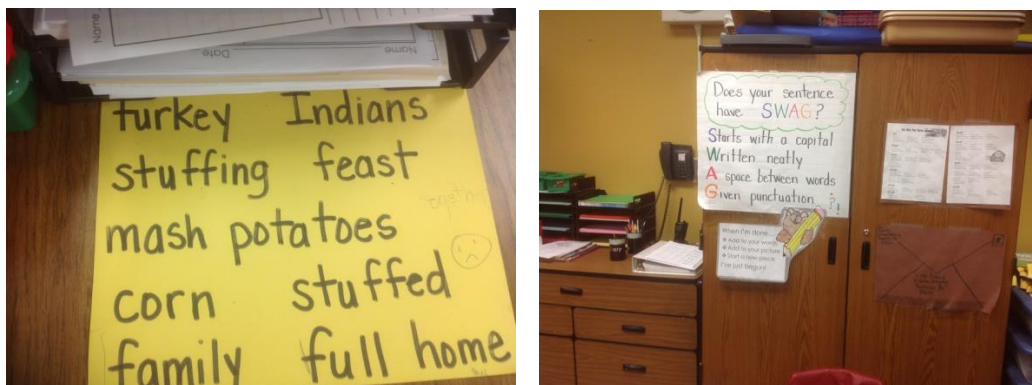 Name
Date
Name
turkey Indians
stuffing feast
mash potatoes
corn stuffed
family full home
Does your sentence
have SWAG?
Starts with a capital
Written neatly
A space between words
Given punctuation .?!
When I'm done...
Add to your words
Add to your picture
Start a new piece
I've just begun!